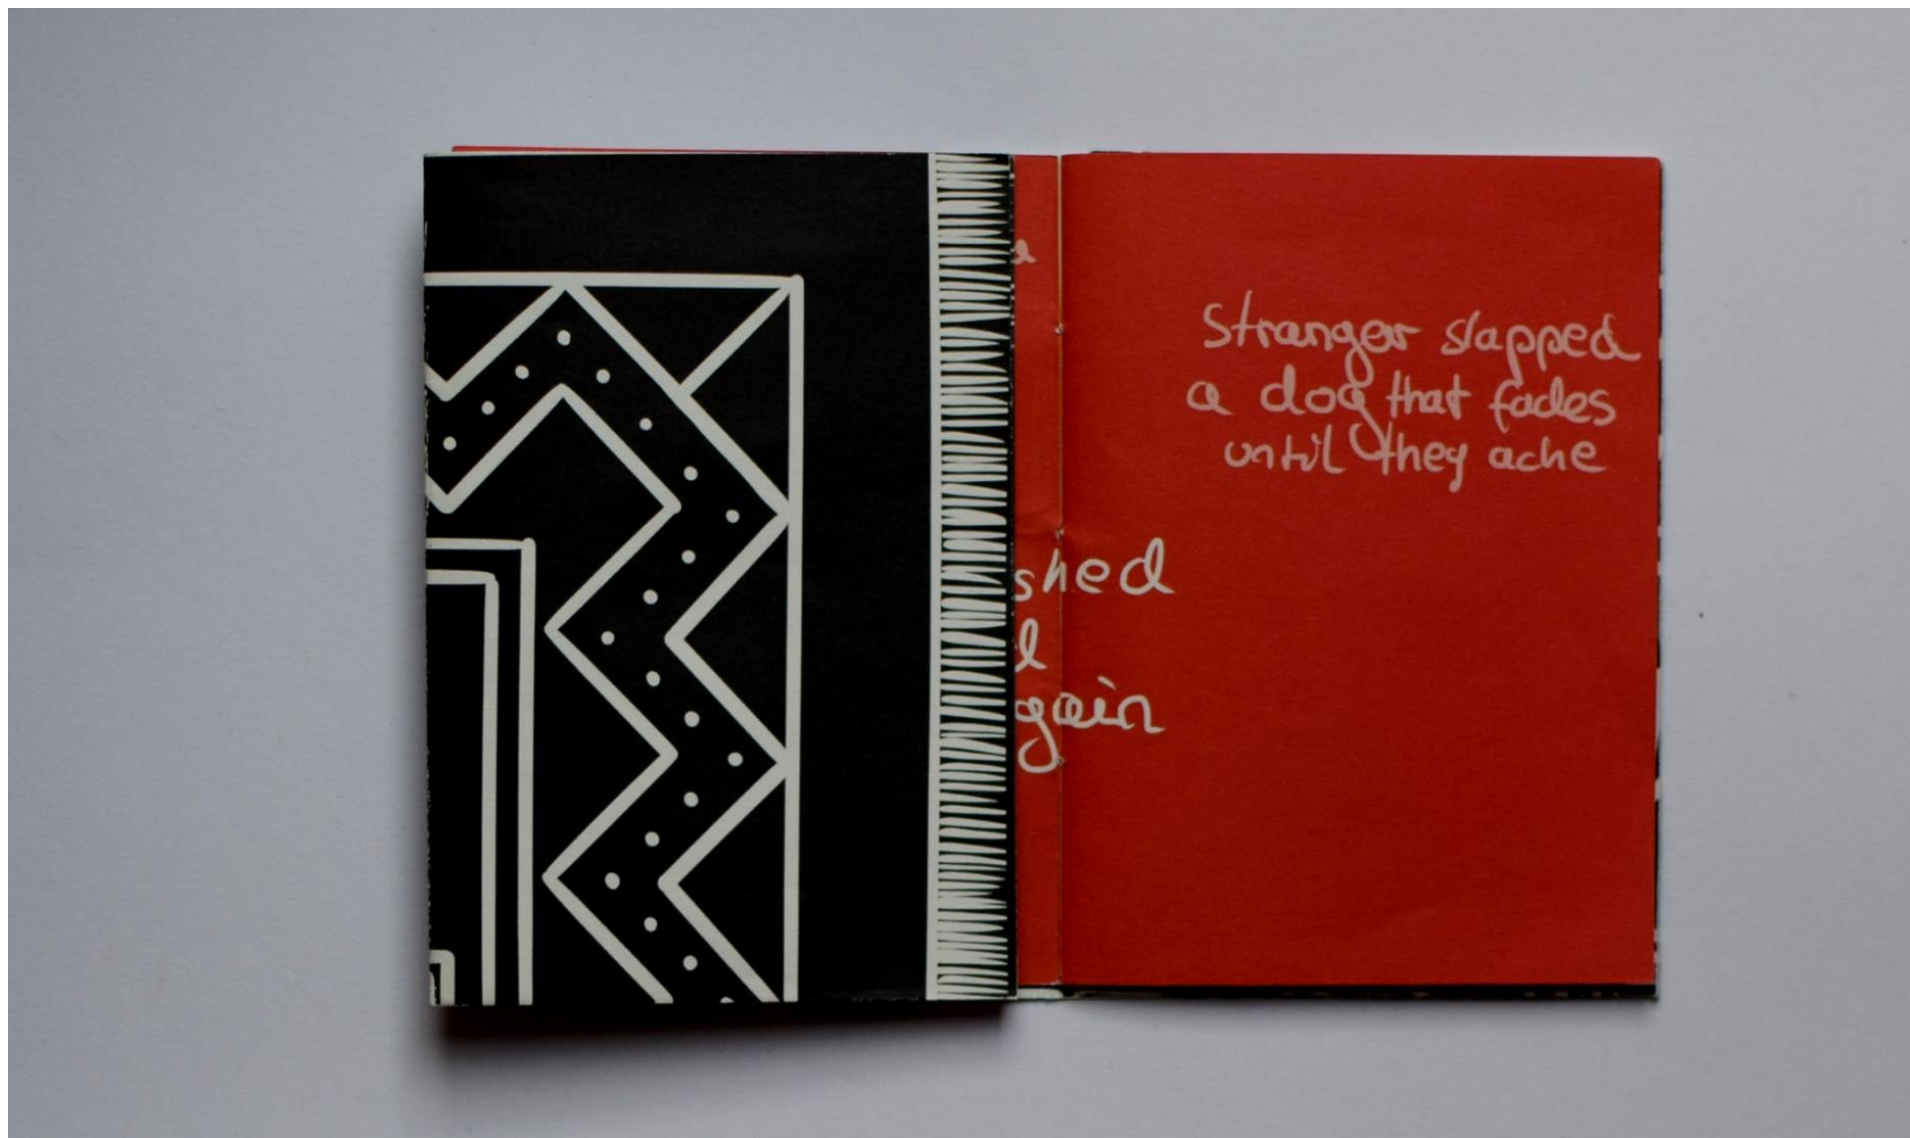 Stranger slapped
a dog that fades
until they ache
shed
gain